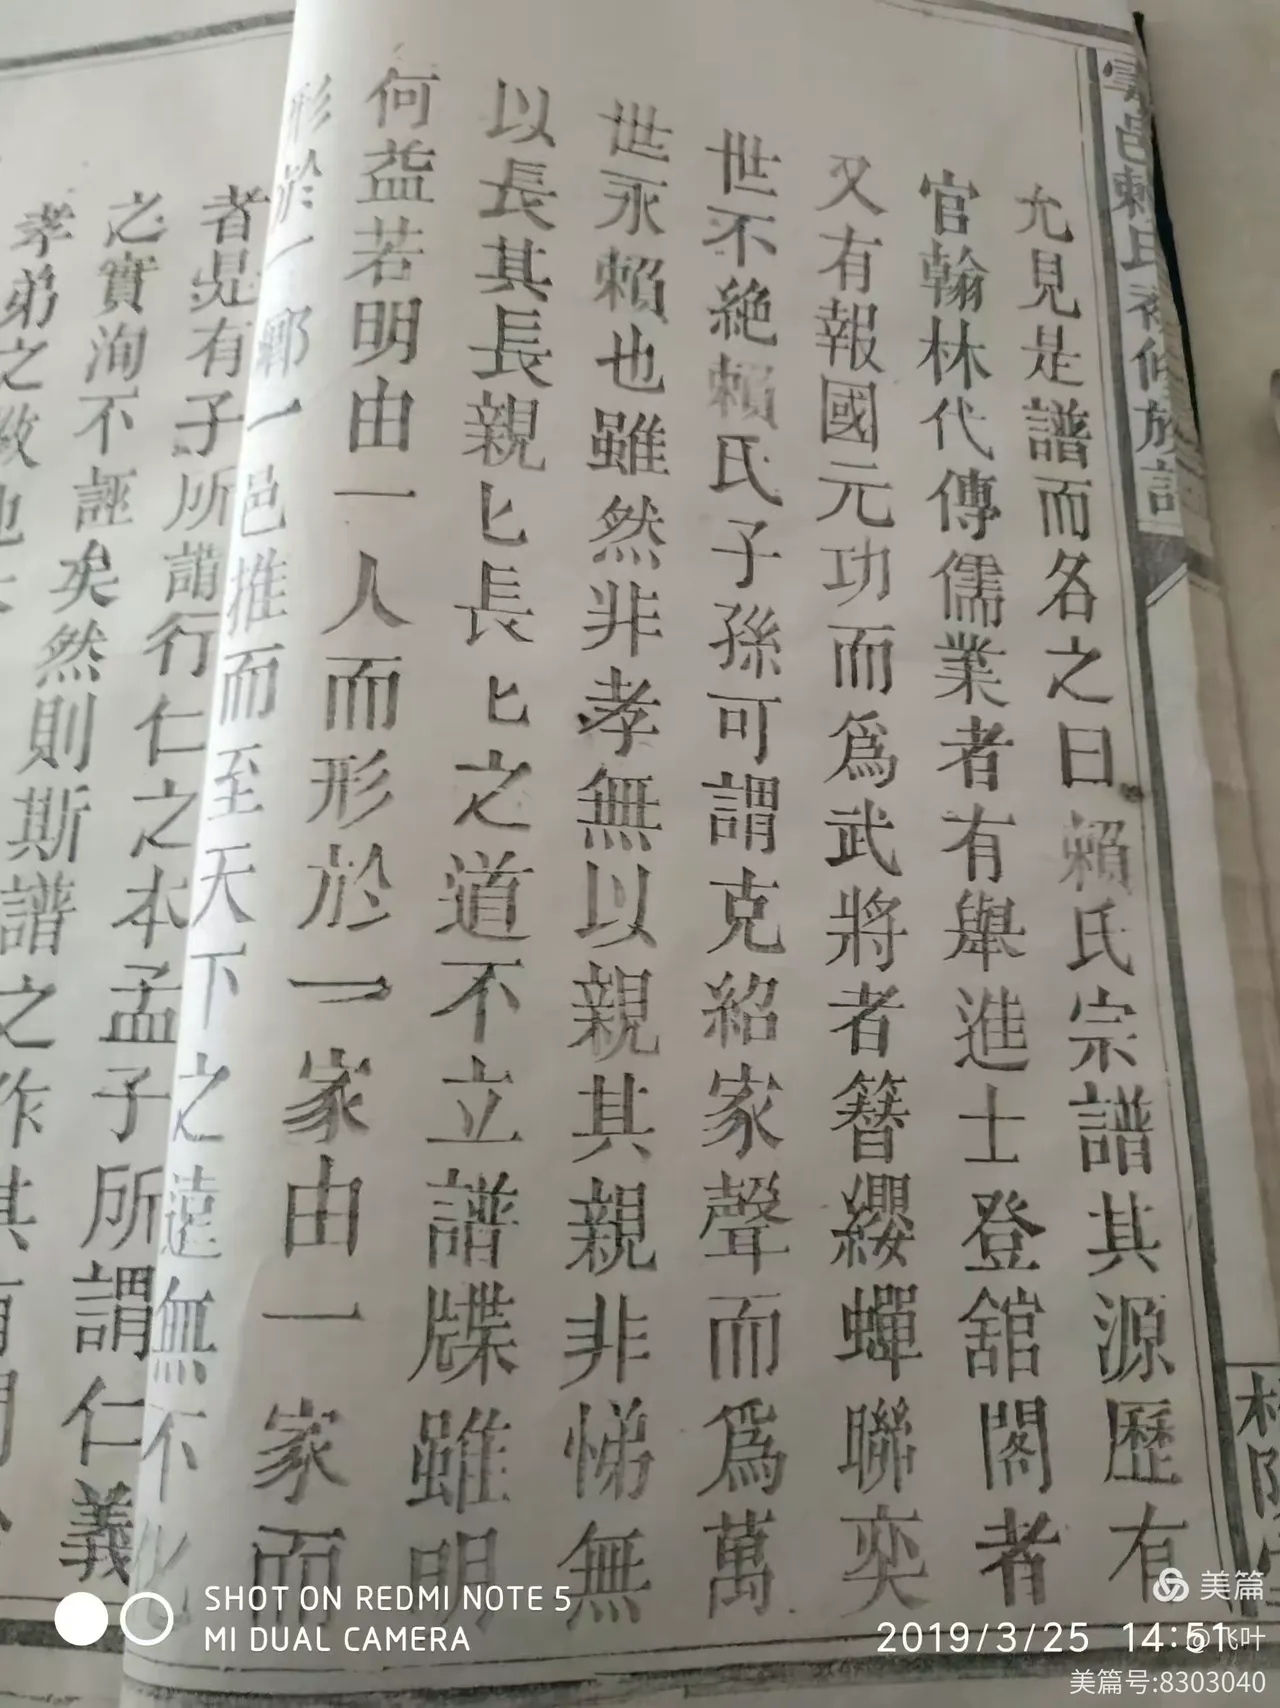 雩邑賴氏
族譜
允見是譜而名之曰賴氏宗譜其源歷有
官翰林代傳儒業者有舉進士登舘閣者
又有報國元功而爲武將者簪纓蟬聯奕
世不絶賴氏子孫可謂克紹家聲而爲萬
世永賴也雖然非孝無以親其親非悌無
以長其長親匕長匕之道不立譜牒雖明
何益若明由一人而形於一家由一家而
形於一鄉一邑推而至天下之遠無不化
者是有子所謂行仁之本孟子所謂仁義
之實洵不誣矣然則斯譜之作其
孝弟之
SHOT ON REDMI NOTE 5
MI DUAL CAMERA
美篇
2019/3/25 14:51
@飞叶
美篇号:8303040